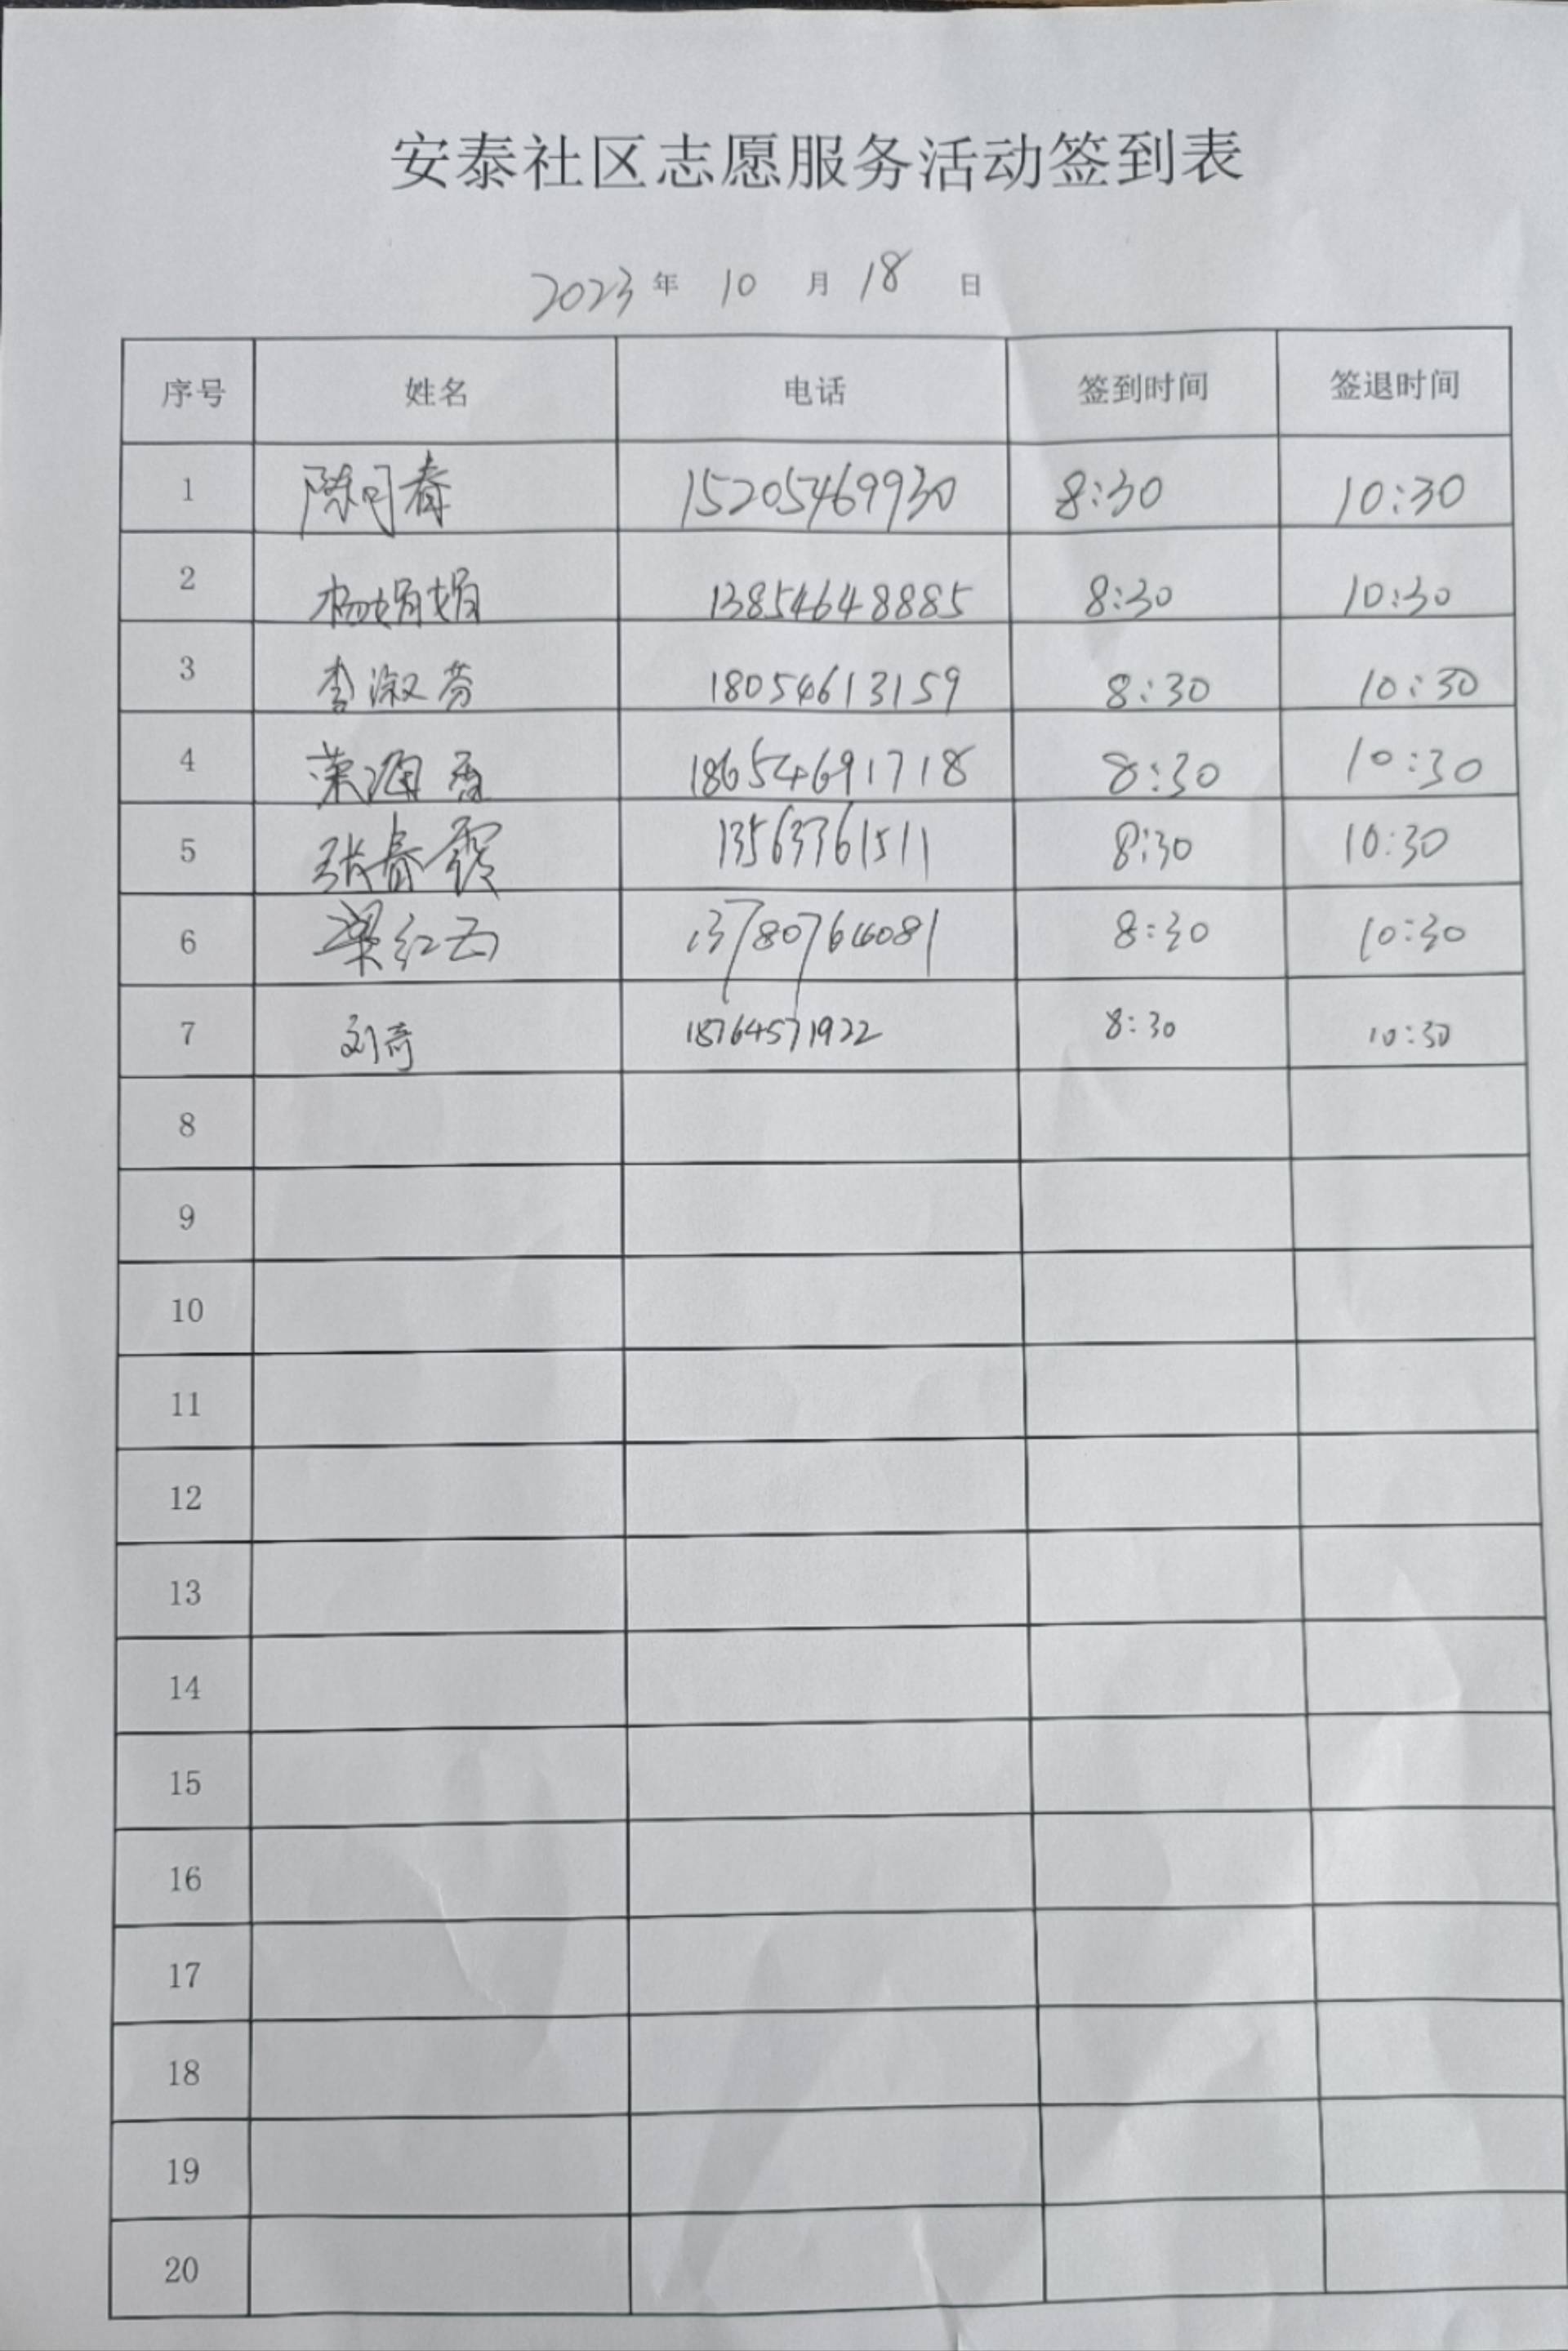 安泰社区志愿服务活动签到表
2023年 10 月 18 日
序号 姓名 电话 签到时间 签退时间
1 陈同春 15205469930 8:30 10:30
2 杨娟娟 13854648885 8:30 10:30
3 李淑芬 18054613159 8:30 10:30
4 荣海香 18654691718 8:30 10:30
5 张春霞 13563761511 8:30 10:30
6 梁红云 13780764081 8:30 10:30
7 刘奇 18764571922 8:30 10:30
8
9
10
11
12
13
14
15
16
17
18
19
20